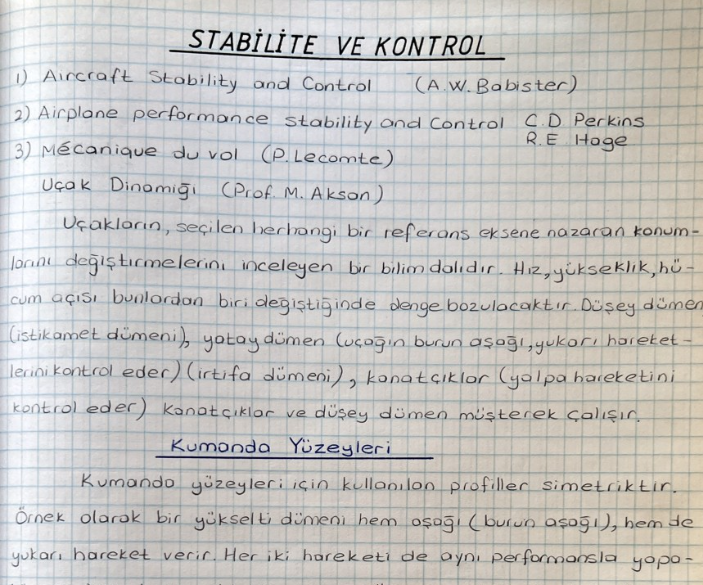 STABİLİTE VE KONTROL
1) Aircraft Stability and Control (A.W. Babister)
2) Airplane performance stability and Control C.D Perkins
R.E Hage
3) Mécanique du vol (P. Lecomte)
Uçak Dinamiği (Prof. M. Akson)
Uçakların, seçilen herhangi bir referans eksene nazaran konum-
larını değiştirmelerini inceleyen bir bilim dalıdır. Hız, yükseklik, hü-
cum açısı bunlardan biri değiştiğinde denge bozulacaktır. Düşey dümen
(istikamet dümeni), yatay dümen (uçağın burun aşağı, yukarı hareket-
lerini kontrol eder) (irtifa dümeni), kanatçıklar (yalpa hareketini
kontrol eder) kanatçıklar ve düşey dümen müşterek çalışır.
Kumanda Yüzeyleri
Kumanda yüzeyleri için kullanılan profiller simetriktir.
Örnek olarak bir yükselti dümeni hem aşağı (burun aşağı), hem de
yukarı hareket verir. Her iki hareketi de aynı performansla yapa-